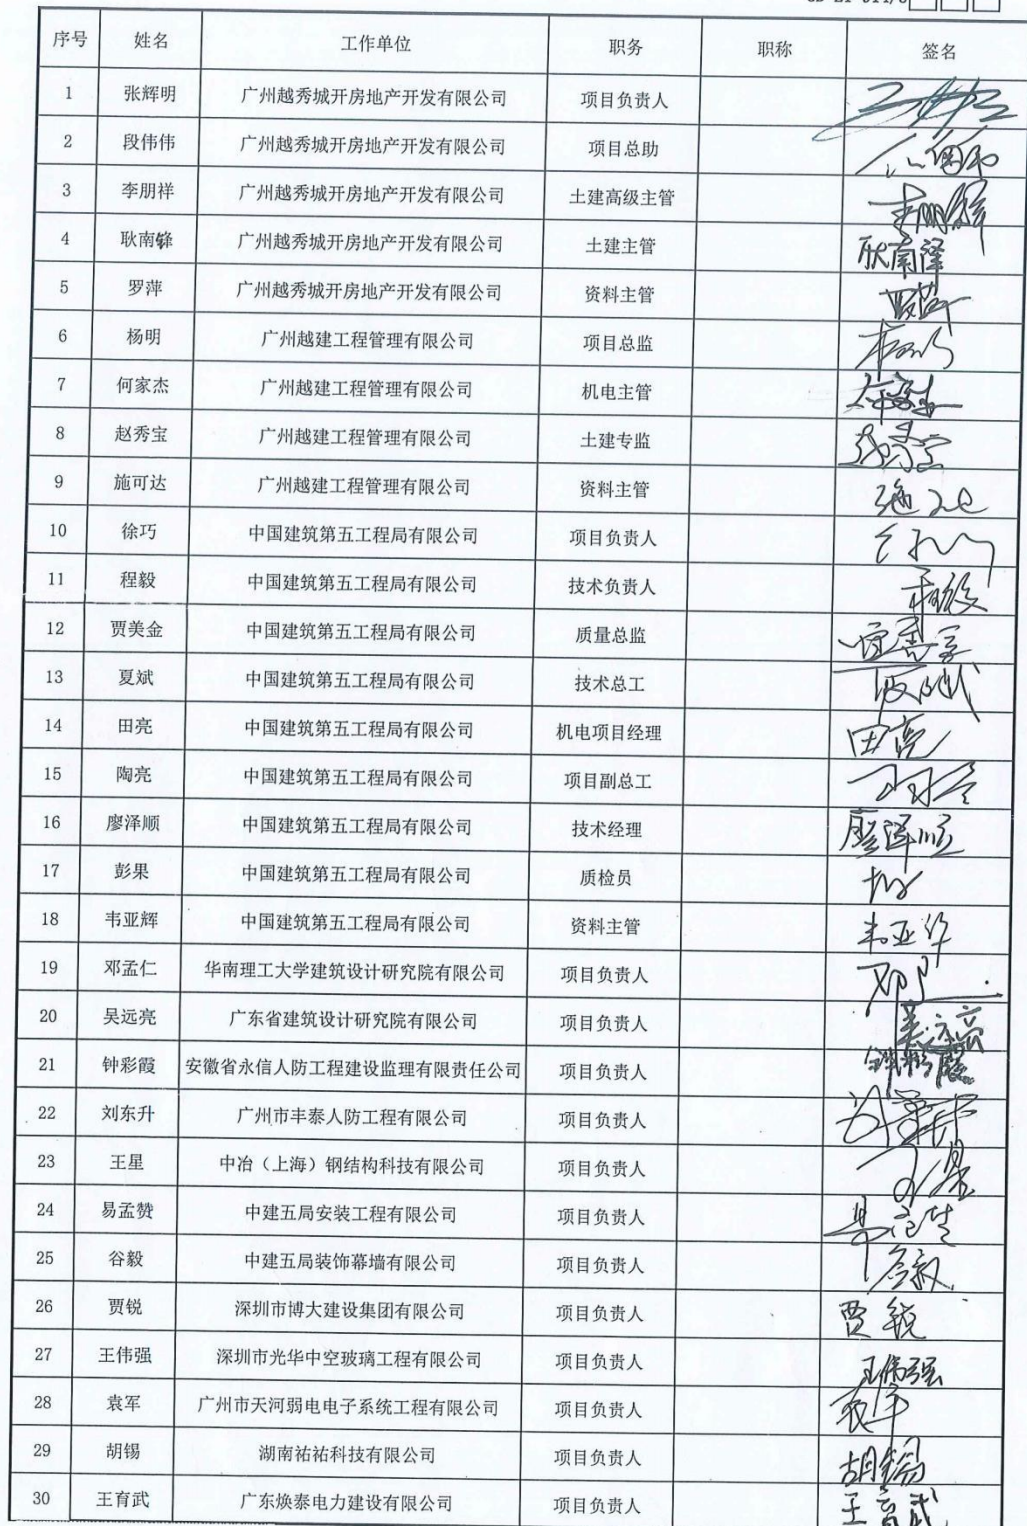 序号 姓名 工作单位 职务 职称 签名
1 张辉明 广州越秀城开房地产开发有限公司 项目负责人
2 段伟伟 广州越秀城开房地产开发有限公司 项目总助
3 李朋祥 广州越秀城开房地产开发有限公司 土建高级主管 李朋祥
4 耿南锋 广州越秀城开房地产开发有限公司 土建主管
5 罗萍 广州越秀城开房地产开发有限公司 资料主管 罗萍
6 杨明 广州越建工程管理有限公司 项目总监 杨明
7 何家杰 广州越建工程管理有限公司 机电主管 何家杰
8 赵秀宝 广州越建工程管理有限公司 土建专监 赵秀宝
9 施可达 广州越建工程管理有限公司 资料主管 施可达
10 徐巧 中国建筑第五工程局有限公司 项目负责人
11 程毅 中国建筑第五工程局有限公司 技术负责人 程毅
12 贾美金 中国建筑第五工程局有限公司 质量总监
13 夏斌 中国建筑第五工程局有限公司 技术总工 夏斌
14 田亮 中国建筑第五工程局有限公司 机电项目经理 田亮
15 陶亮 中国建筑第五工程局有限公司 项目副总工
16 廖泽顺 中国建筑第五工程局有限公司 技术经理 廖泽顺
17 彭果 中国建筑第五工程局有限公司 质检员
18 韦亚辉 中国建筑第五工程局有限公司 资料主管
19 邓孟仁 华南理工大学建筑设计研究院有限公司 项目负责人
20 吴远亮 广东省建筑设计研究院有限公司 项目负责人 吴远亮
21 钟彩霞 安徽省永信人防工程建设监理有限责任公司 项目负责人 钟彩霞
22 刘东升 广州市丰泰人防工程有限公司 项目负责人 刘东升
23 王星 中冶（上海）钢结构科技有限公司 项目负责人 王星
24 易孟赞 中建五局安装工程有限公司 项目负责人
25 谷毅 中建五局装饰幕墙有限公司 项目负责人 谷毅
26 贾锐 深圳市博大建设集团有限公司 项目负责人 贾锐
27 王伟强 深圳市光华中空玻璃工程有限公司 项目负责人 王伟强
28 袁军 广州市天河弱电电子系统工程有限公司 项目负责人 袁军
29 胡锡 湖南祐祐科技有限公司 项目负责人 胡锡
30 王育武 广东焕泰电力建设有限公司 项目负责人 王育武